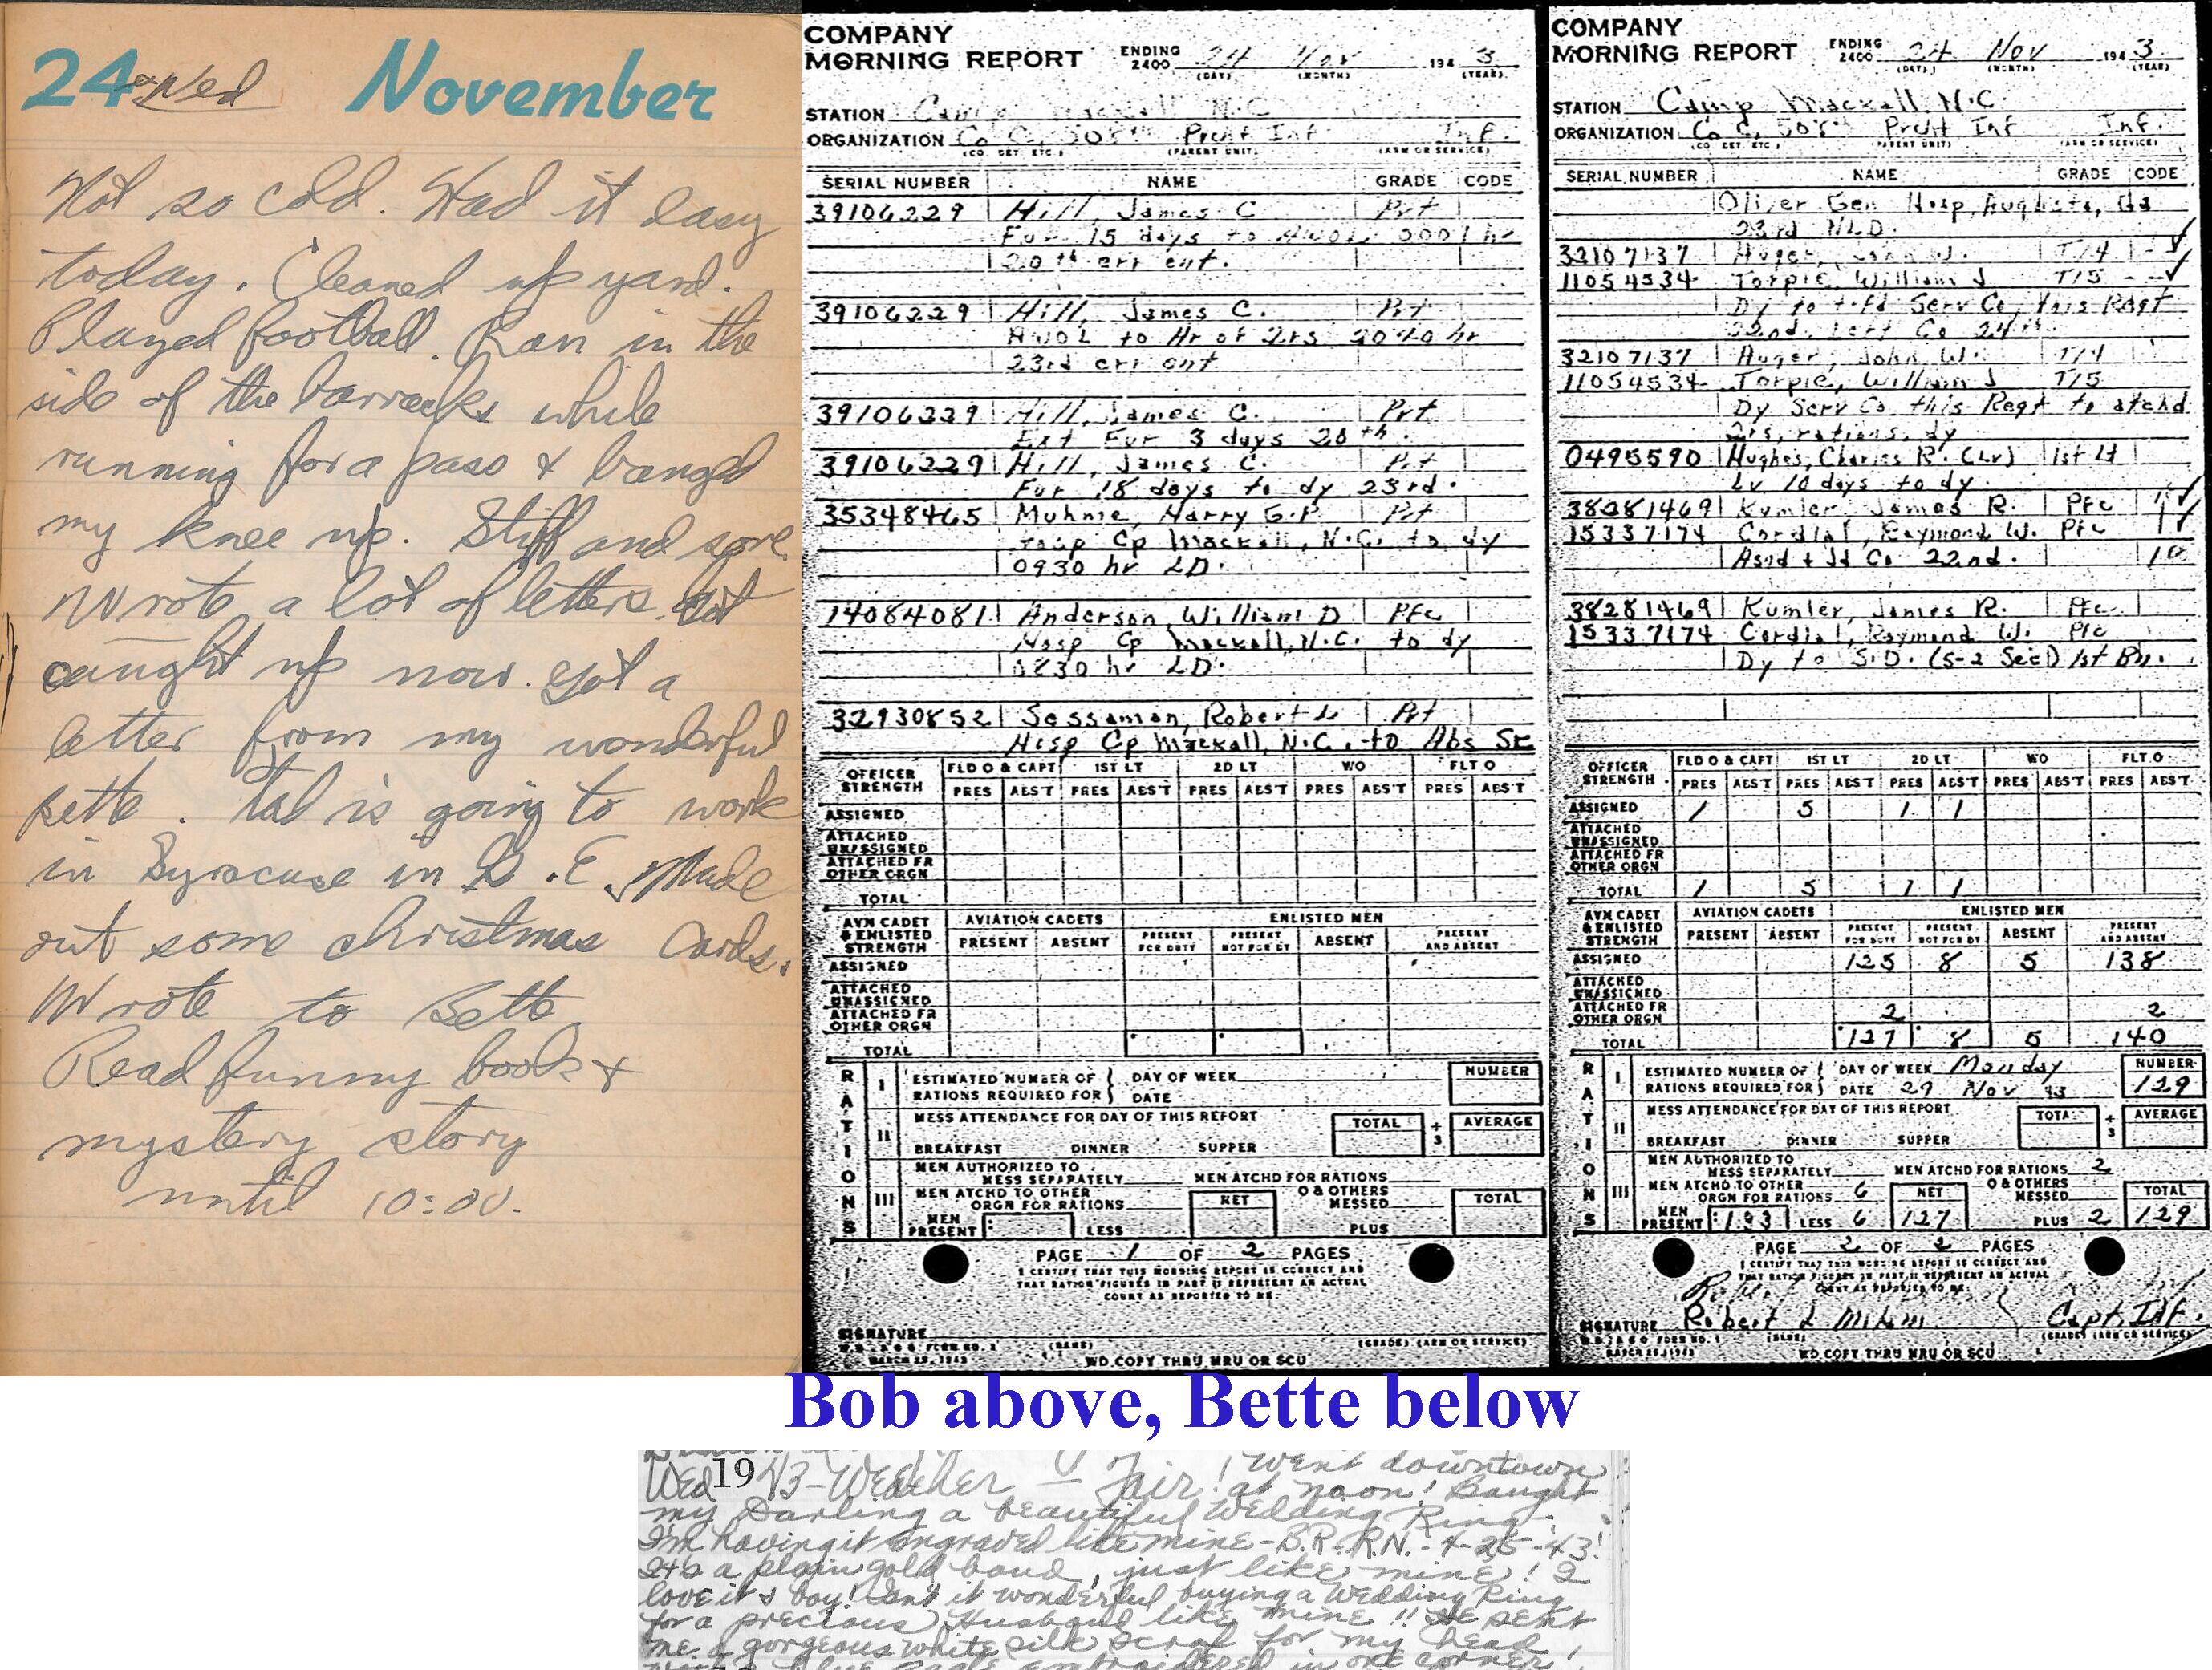 24 Wed November
Not so cold. Had it easy
today. Cleaned up yard.
Played football. Ran in the
side of the barracks while
running for a pass & banged
my knee up. Stiff and sore.
Wrote a lot of letters. Got
caught up now. Got a
letter from my wonderful
Bette. Tad is going to work
in Syracuse in G.E. Made
out some christmas Cards.
Wrote to Bette
Read funny books &
mystery story
until 10:00.
COMPANY
MORNING REPORT ENDING 2400 24 Nov 1943
(DAY) (MONTH) (YEAR)
STATION Camp Mackall N.C.
ORGANIZATION Co C, 508th Prcht Inf Inf.
(CO. DET. ETC.) (PARENT UNIT) (ARM OR SERVICE)
SERIAL NUMBER NAME GRADE CODE
39106229 Hill, James C Pvt
Fur 15 days to AWOL 0001 hr
20th err ent.
39106229 Hill, James C. Pvt
AWOL to Ar of Qrs 2040 hr
23rd err ent
39106229 Hill, James C. Pvt
Ext Fur 3 days 20th.
39106229 Hill, James C. Pvt
Fur 18 days to dy 23rd.
35348465 Muhnie, Harry G.P. Pvt
Hosp Cp Mackall, N.C. to dy
0930 hr LD.
14084081 Anderson, William D Pfc
Hosp Cp Mackall, N.C. to dy
0830 hr LD.
32930852 Sessaman, Robert L Pvt
Hosp Cp Mackall, N.C. to Abs Sk
OFFICER STRENGTH FLD O & CAPT 1ST LT 2D LT WO FLT O
PRES ABS'T PRES ABS'T PRES ABS'T PRES ABS'T PRES ABS'T
ASSIGNED
ATTACHED UNASSIGNED
ATTACHED FR OTHER ORGN
TOTAL
AVN CADET & ENLISTED STRENGTH AVIATION CADETS ENLISTED MEN
PRESENT ABSENT PRESENT FOR DUTY PRESENT NOT FOR DY ABSENT PRESENT AND ABSENT
ASSIGNED
ATTACHED UNASSIGNED
ATTACHED FR OTHER ORGN
TOTAL
RATIONS
I ESTIMATED NUMBER OF RATIONS REQUIRED FOR DAY OF WEEK DATE NUMBER
II MESS ATTENDANCE FOR DAY OF THIS REPORT TOTAL ÷ 3 AVERAGE
BREAKFAST DINNER SUPPER
III MEN AUTHORIZED TO MESS SEPARATELY MEN ATCHD FOR RATIONS
MEN ATCHD TO OTHER ORGN FOR RATIONS NET O & OTHERS MESSED TOTAL
MEN PRESENT LESS PLUS
PAGE 1 OF 2 PAGES
I CERTIFY THAT THIS MORNING REPORT IS CORRECT AND
THAT RATION FIGURES IN PART II REPRESENT AN ACTUAL
COUNT AS REPORTED TO ME.
SIGNATURE
W.D., A.G.O. FORM NO. 1 (NAME) (GRADE) (ARM OR SERVICE)
MARCH 25, 1943 WD COPY THRU MRU OR SCU
COMPANY
MORNING REPORT ENDING 2400 24 Nov 1943
(DAY) (MONTH) (YEAR)
STATION Camp Mackall, N.C.
ORGANIZATION Co C, 508th Prcht Inf Inf.
(CO. DET. ETC.) (PARENT UNIT) (ARM OR SERVICE)
SERIAL NUMBER NAME GRADE CODE
Oliver Gen Hosp, Augusta, Ga
23rd NLD.
32107137 Auger, John W. T/4
11054534 Torpie, William J T/5
Dy to Serv Co, this Regt
22nd. Left Co 24th.
32107137 Auger, John W. T/4
11054534 Torpie, William J T/5
Dy Serv Co this Regt to atchd
qrs, rations, dy
0495590 Hughes, Charles R. (Lv) 1st Lt
Lv 10 days to dy.
38281469 Kumler, James R. Pfc
15337174 Cordial, Raymond W. Pfc
Asgd & Jd Co 22nd.
38281469 Kumler, James R. Pfc
15337174 Cordial, Raymond W. Pfc
Dy to S.D. (S-2 Sec) 1st Bn.
OFFICER STRENGTH FLD O & CAPT 1ST LT 2D LT WO FLT O
PRES ABS'T PRES ABS'T PRES ABS'T PRES ABS'T PRES ABS'T
ASSIGNED 1 5 1 1
ATTACHED UNASSIGNED
ATTACHED FR OTHER ORGN
TOTAL 1 5 1 1
AVN CADET & ENLISTED STRENGTH AVIATION CADETS ENLISTED MEN
PRESENT ABSENT PRESENT FOR DUTY PRESENT NOT FOR DY ABSENT PRESENT AND ABSENT
ASSIGNED 125 8 5 138
ATTACHED UNASSIGNED
ATTACHED FR OTHER ORGN 2 2
TOTAL 127 8 5 140
RATIONS
I ESTIMATED NUMBER OF RATIONS REQUIRED FOR DAY OF WEEK Monday DATE 29 Nov 43 NUMBER 129
II MESS ATTENDANCE FOR DAY OF THIS REPORT TOTAL ÷ 3 AVERAGE
BREAKFAST DINNER SUPPER
III MEN AUTHORIZED TO MESS SEPARATELY MEN ATCHD FOR RATIONS 2
MEN ATCHD TO OTHER ORGN FOR RATIONS 6 NET O & OTHERS MESSED TOTAL
MEN PRESENT 133 LESS 6 127 PLUS 2 129
PAGE 2 OF 2 PAGES
I CERTIFY THAT THIS MORNING REPORT IS CORRECT AND
THAT RATION FIGURES IN PART II REPRESENT AN ACTUAL
COUNT AS REPORTED TO ME.
SIGNATURE Robert L Milam Capt. Inf.
W.D., A.G.O. FORM NO. 1 (NAME) (GRADE) (ARM OR SERVICE)
MARCH 25, 1943 WD COPY THRU MRU OR SCU
Bob above, Bette below
Wed 1943 - Weather - Fair! Went downtown
at noon! Bought
my Darling a beautiful Wedding Ring.
I'm having it engraved like mine - B.R. R.N. - 4-25-43!
It's a plain gold band, just like mine! I
love it & boy! Isn't it wonderful buying a Wedding Ring
for a precious Husband like mine!! He sent
me a gorgeous white silk scarf for my head,
embroidered in one corner!